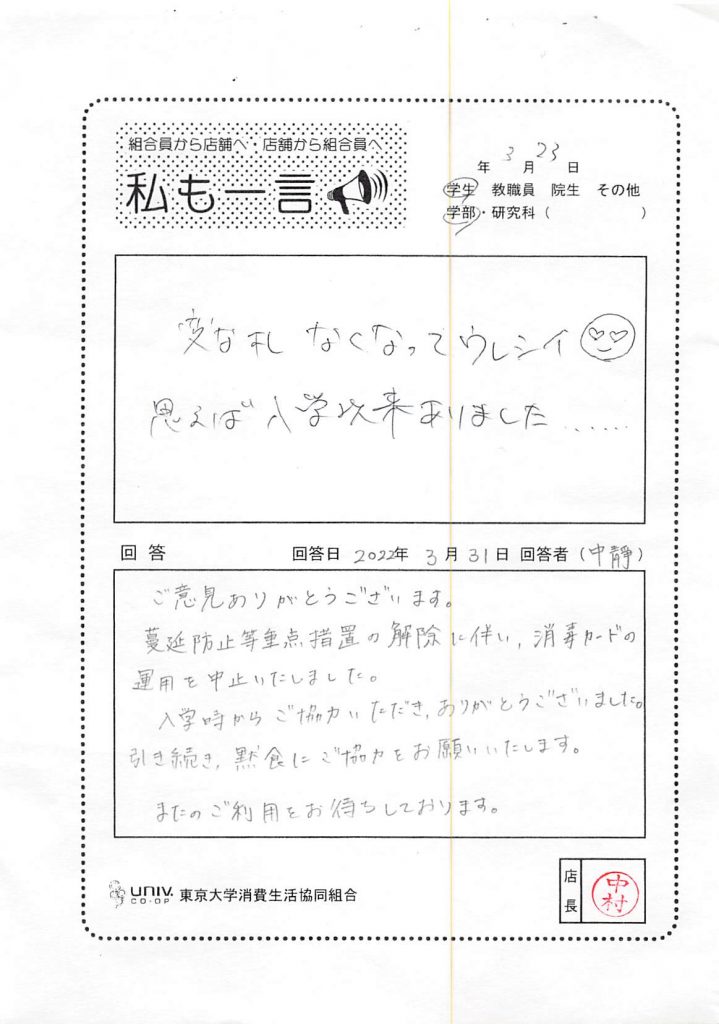 組合員から店舗へ・店舗から組合員へ
私も一言
3 23
年 月 日
学生 教職員 院生 その他
学部・研究科( )
変な札 なくなってウレシイ
思えば入学以来ありました......
回答 回答日 2022年 3月31日 回答者(中静)
ご意見ありがとうございます。
蔓延防止等重点措置の解除に伴い,消毒カードの
運用を中止いたしました。
入学時からご協力いただき,ありがとうございました。
引き続き,黙食にご協力をお願いいたします。
またのご利用をお待ちしております。
UNIV.
CO-OP
東京大学消費生活協同組合
店長
中村